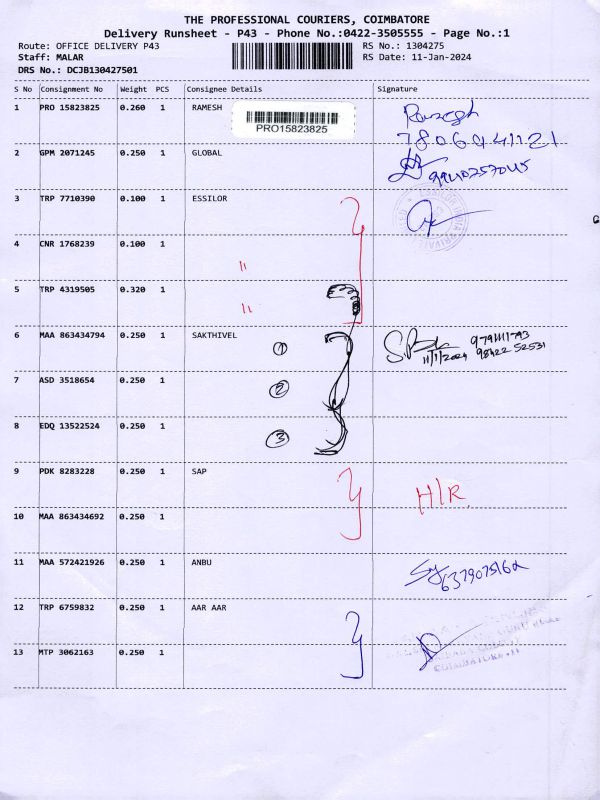 THE PROFESSIONAL COURIERS, COIMBATORE
Delivery Runsheet - P43 - Phone No.:0422-3505555 - Page No.:1
Route: OFFICE DELIVERY P43 RS No.: 1304275
Staff: MALAR RS Date: 11-Jan-2024
DRS No.: DCJB130427501
S No Consignment No Weight PCS Consignee Details Signature
1 PRO 15823825 0.260 1 RAMESH Ramesh
PRO15823825
7806941121
2 GPM 2071245 0.250 1 GLOBAL
3 TRP 7710390 0.100 1 ESSILOR
4 CNR 1768239 0.100 1 "
5 TRP 4319505 0.320 1 "
6 MAA 863434794 0.250 1 SAKTHIVEL 1 9791111793
11/1/2024 98422 52531
7 ASD 3518654 0.250 1 2
8 EDQ 13522524 0.250 1 3
9 PDK 8283228 0.250 1 SAP H/R
10 MAA 863434692 0.250 1
11 MAA 572421926 0.250 1 ANBU
12 TRP 6759832 0.250 1 AAR AAR
13 MTP 3062163 0.250 1